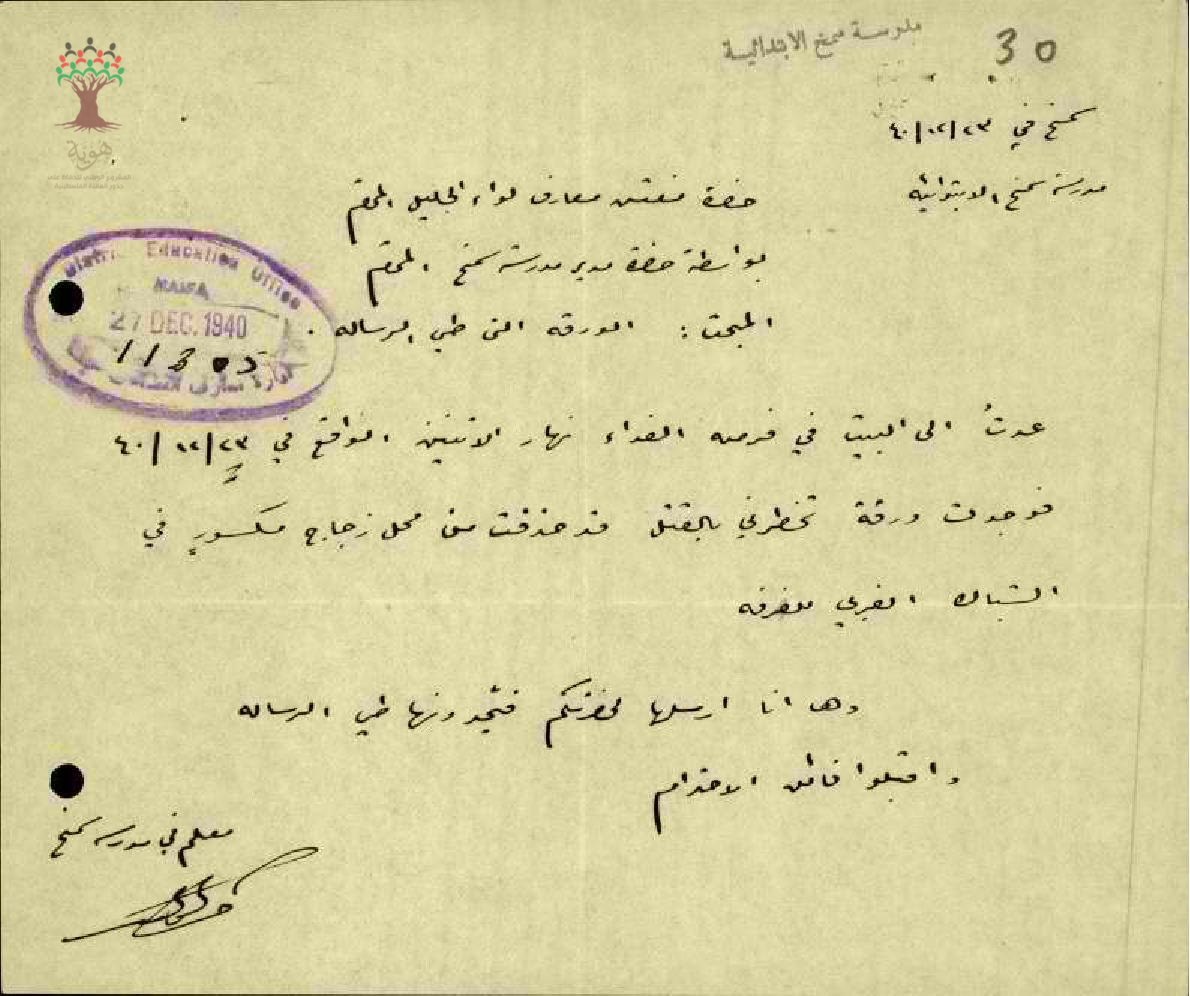 مدرسة سمخ الابتدائية
30
سمخ في ٢٣/١٢/٤٠
مدرسة سمخ الابتدائيه
حضرة مفتش معارف لواء الجليل المحترم
بواسطة حضرة مدير مدرسة سمخ المحترم
المبحث: الورقه التي طي الرساله.
عدتُ الى البيت في فرصه الغداء نهار الاثنين الواقع في ٢٣/١٢/٤٠
فوجدت ورقة تخطرني بالقتل قد حذفت من محل زجاج مكسور في
الشباك الغربي للغرفه
وها انا ارسلها لحضرتكم فتجدونها طي الرساله
واقبلوا فائق الاحترام
معلم في مدرسة سمخ
هوية
District Education Office
HAIFA
27 DEC. 1940